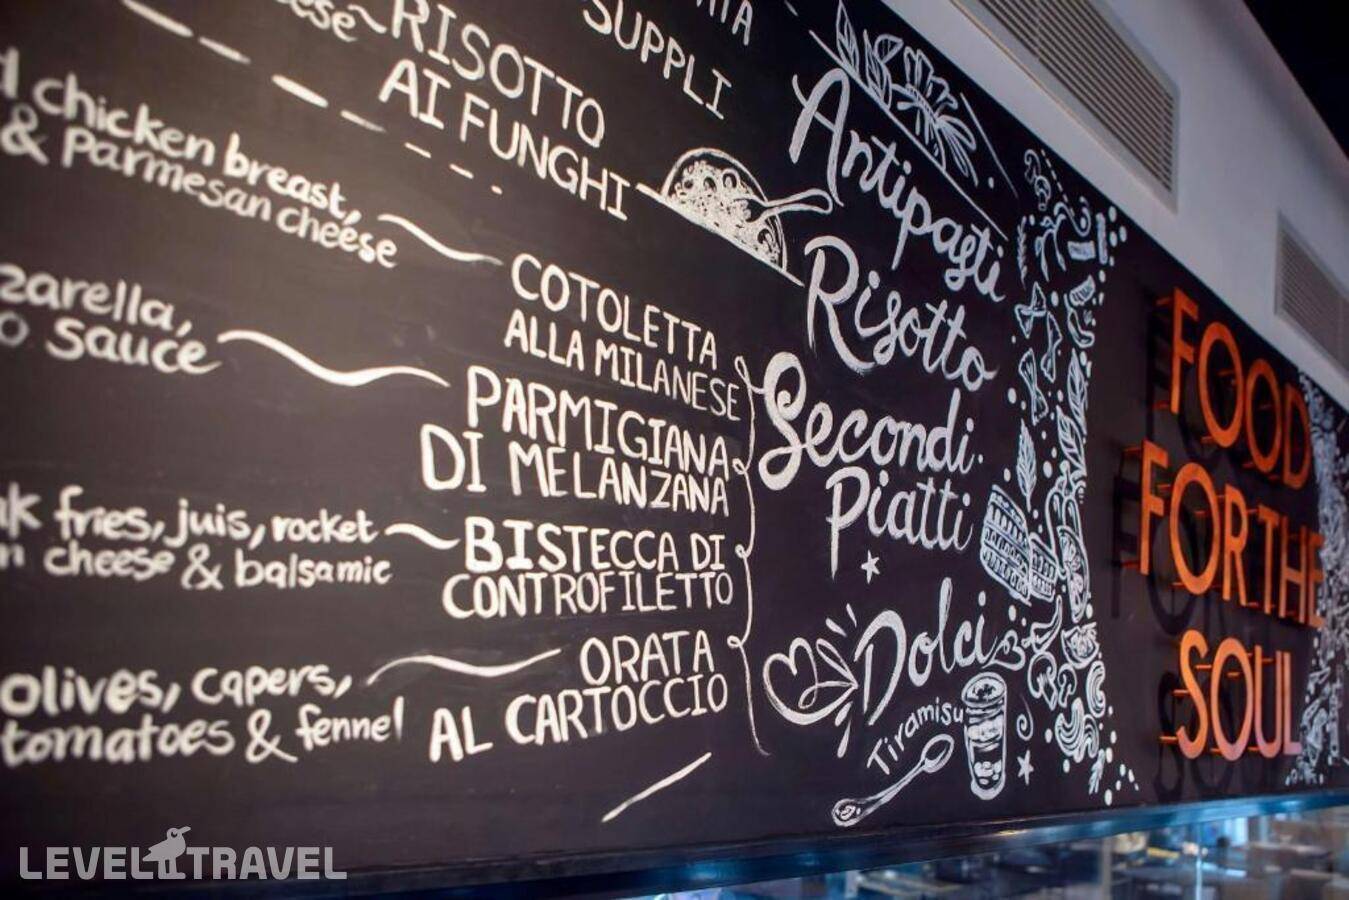 RISOTTO
AI FUNGHI
SUPPLI
chicken breast,
& Parmesan cheese
COTOLETTA
ALLA MILANESE
sauce
PARMIGIANA
DI MELANZANA
fries, juis, rocket
cheese & balsamic
BISTECCA DI
CONTROFILETTO
olives, capers,
tomatoes & fennel
ORATA
AL CARTOCCIO
Antipasti
Risotto
Secondi
Piatti
Dolci
Tiramisu
FOOD
FOR THE
SOUL
LEVEL TRAVEL